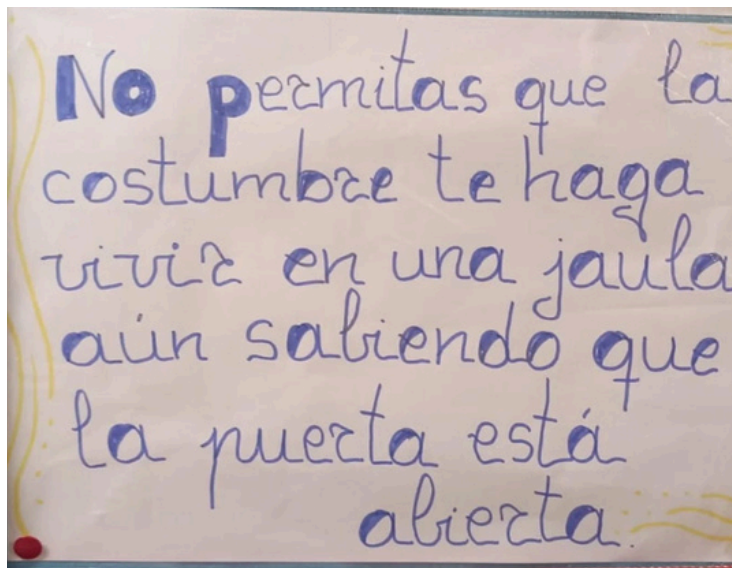 No permitas que la
costumbre te haga
vivir en una jaula
aún sabiendo que
la puerta está
abierta.